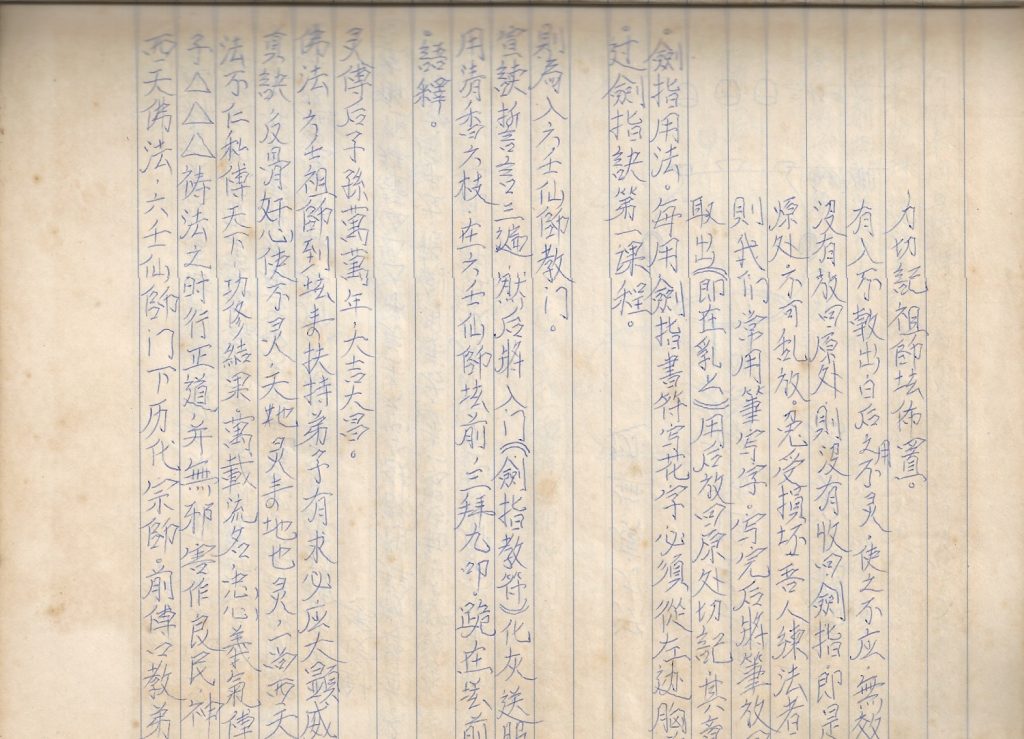 力切記祖師坛佈置。
有入不敦出白后用之不灵，使之不应，無效
沒有放回原处，則沒有收回劍指，即是
原处，亦可乱放。免受損坏，吾人練法者
則我们常用筆写字。写完后將筆放
取出（即在乳之）用后放回原处切記，其意
劍指用法。每用劍指書符写花字必須從左边胸
过劍指訣第一課程。
則為入六壬仙師教门。
宣読誓言三遍，然后將入门（劍指教符）化灰送服
用清香六枝，在六壬仙師坛前，三拜九叩，跪在坛前
語釋。
灵傳后子孫萬萬年，大吉大昌。
佛法，六壬祖師到坛来扶持弟子有求必应大顯威
真訣，反骨奸心使不灵，天地灵来地也灵，一尚西天
法不仁私傳天下，功修結果，萬載流名，忠心義氣傳
子△△△禱法之时行正道，并無邪害作良民，神
西天佛法，六壬仙師门下历代宗師，前傳口教弟